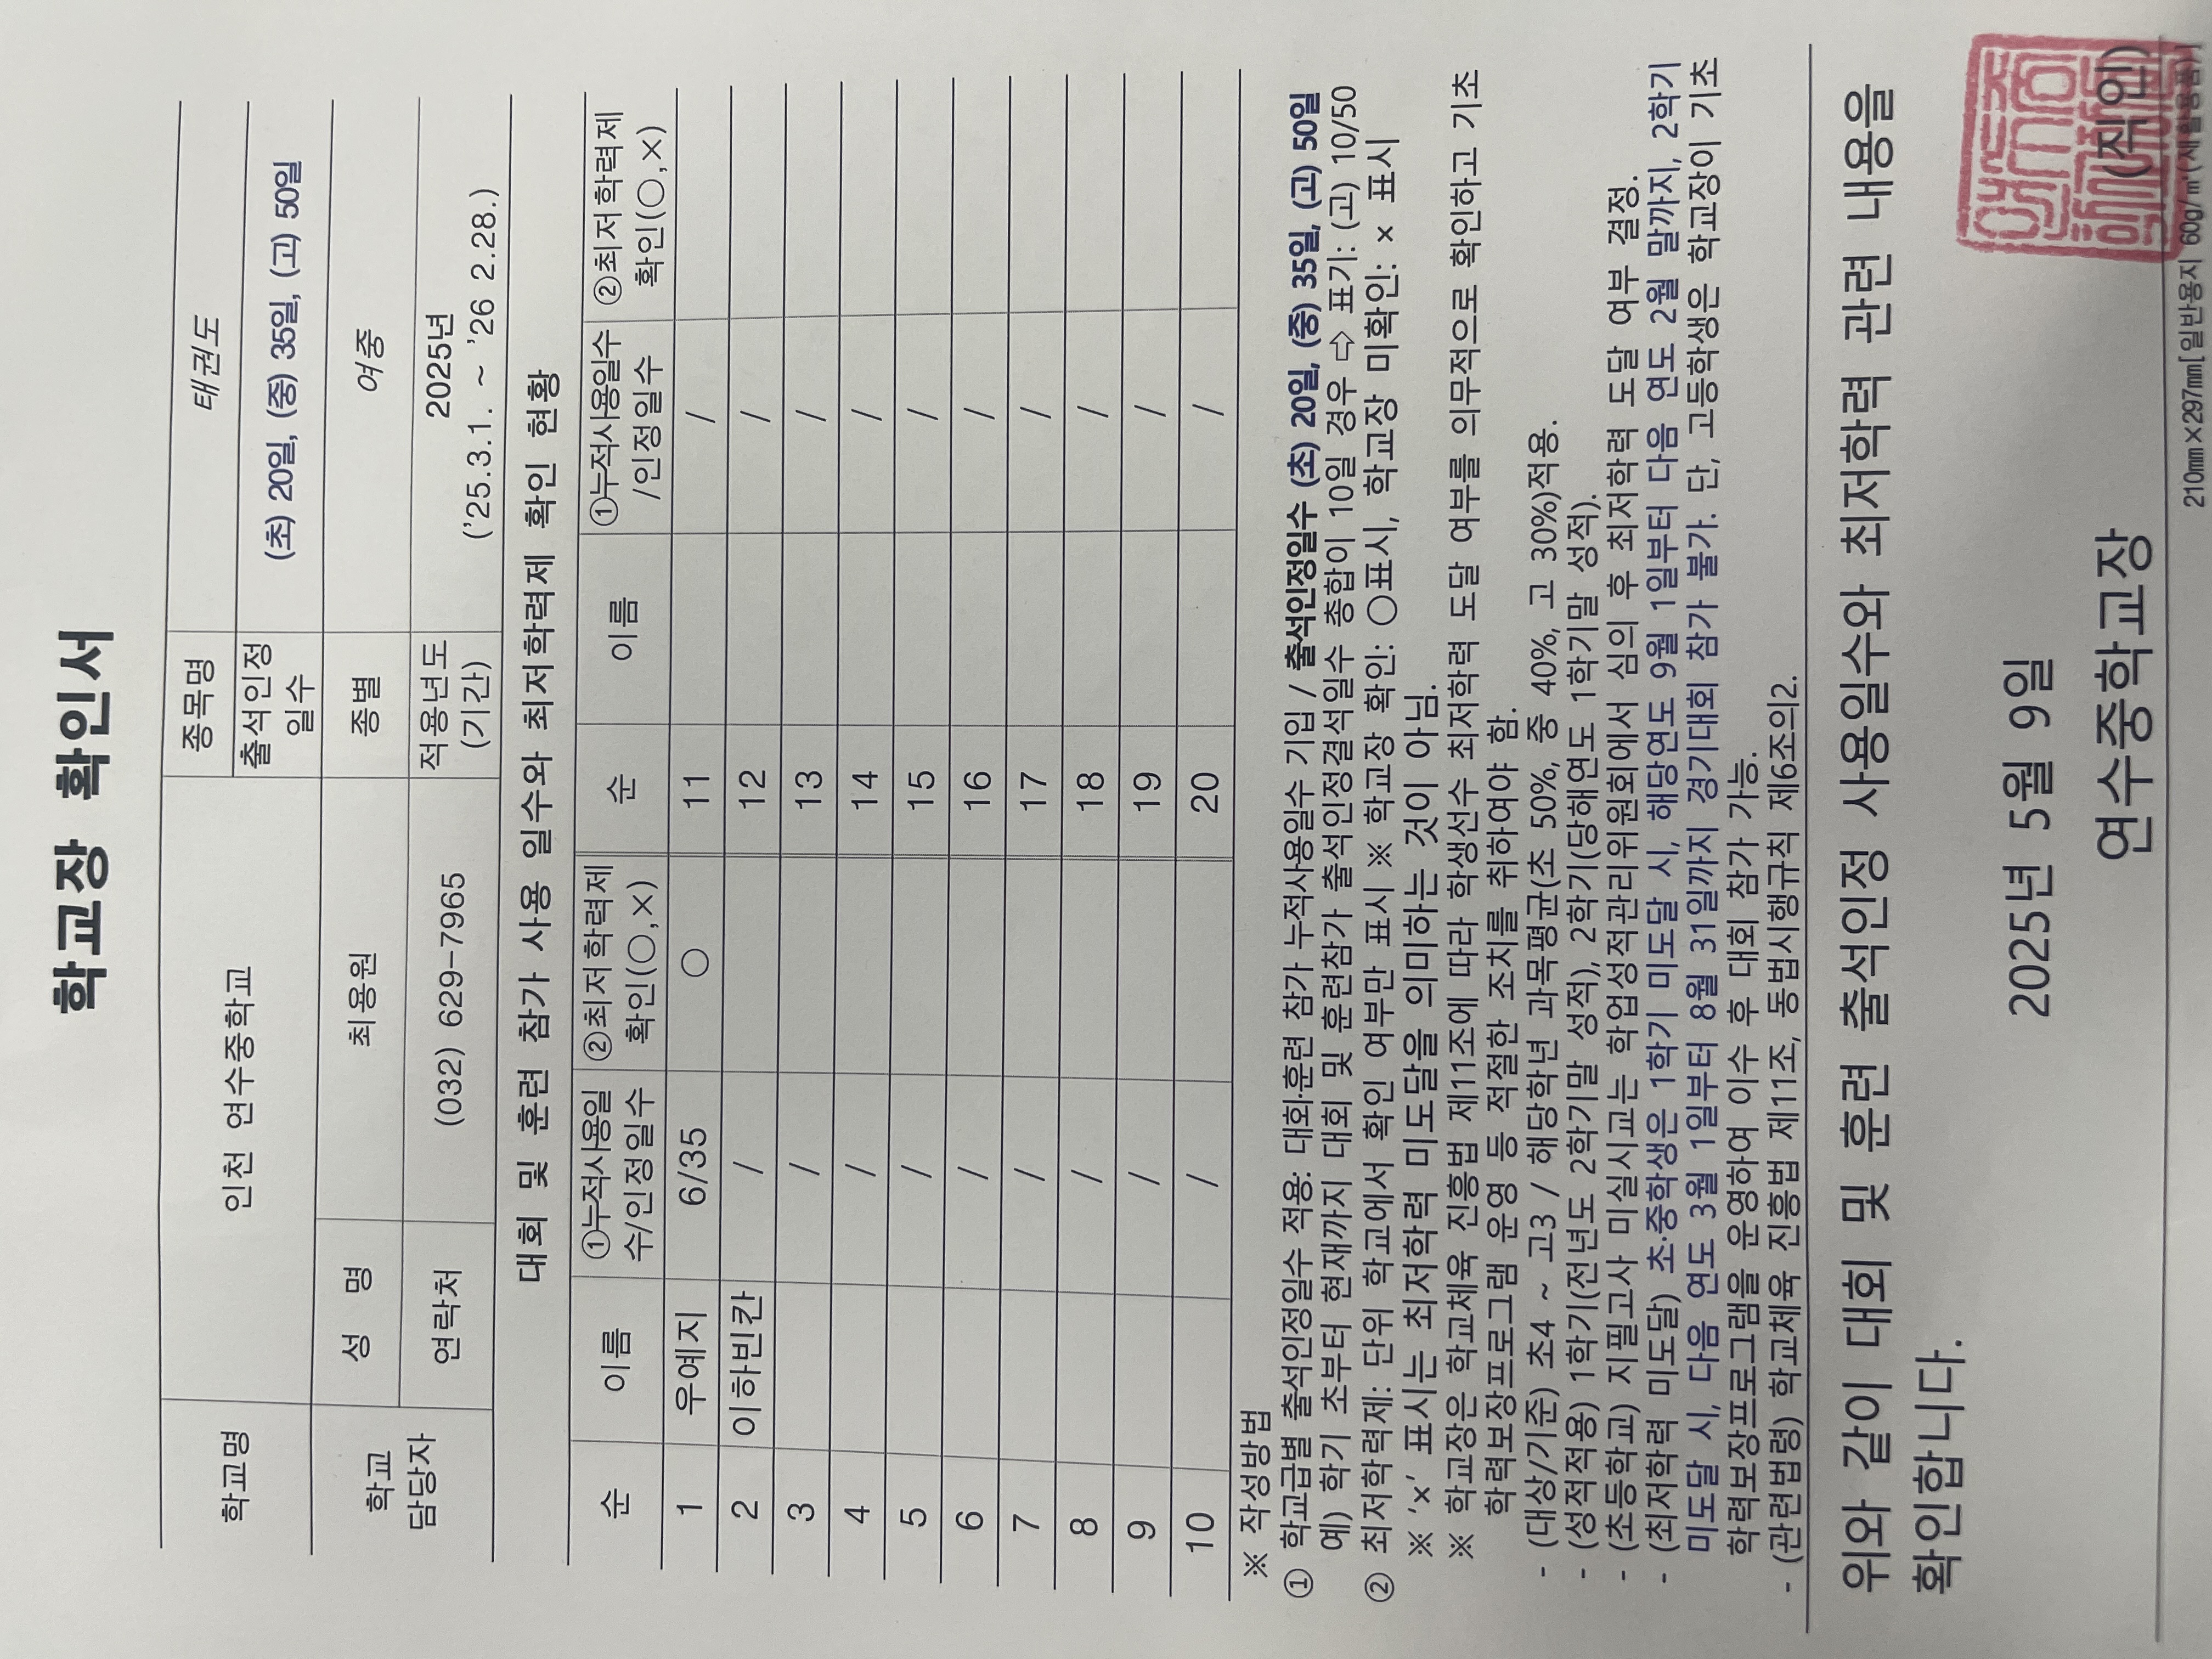 학교장 확인서
학교명 인천 연수중학교 종목명 태권도
출석인정 일수 (초) 20일, (중) 35일, (고) 50일
학교 담당자 성 명 최용원 종별 여중
연락처 (032) 629-7965 적용년도 (기간) 2025년 ('25.3.1. ~ '26 2.28.)
대회 및 훈련 참가 사용 일수와 최저학력제 확인 현황
순 이름 ①누적사용일수/인정일수 ②최저학력제 확인(○,×) 순 이름 ①누적사용일수/인정일수 ②최저학력제 확인(○,×)
1 우예지 6/35 ○ 11 /
2 이하빈칸 / 12 /
3 / 13 /
4 / 14 /
5 / 15 /
6 / 16 /
7 / 17 /
8 / 18 /
9 / 19 /
10 / 20 /
※ 작성방법
① 학교급별 출석인정일수 적용: 대회·훈련 참가 누적사용일수 기입 / 출석인정일수 (초) 20일, (중) 35일, (고) 50일
예) 학기 초부터 현재까지 대회 및 훈련참가 출석인정결석일수 총합이 10일 경우 ⇨ 표기: (고) 10/50
② 최저학력제: 단위 학교에서 확인 여부만 표시 ※ 학교장 확인: ○표시, 학교장 미확인: × 표시
※ ‘×’ 표시는 최저학력 미도달을 의미하는 것이 아님.
※ 학교장은 학교체육 진흥법 제11조에 따라 학생선수 최저학력 도달 여부를 의무적으로 확인하고 기초
학력보장프로그램 운영 등 적절한 조치를 취하여야 함.
- (대상/기준) 초4 ~ 고3 / 해당학년 과목평균(초 50%, 중 40%, 고 30%)적용.
- (성적적용) 1학기(전년도 2학기말 성적), 2학기(당해연도 1학기말 성적).
- (초등학교) 지필고사 미실시교는 학업성적관리위원회에서 심의 후 최저학력 도달 여부 결정.
- (최저학력 미도달) 초·중학생은 1학기 미도달 시, 해당연도 9월 1일부터 다음 연도 2월 말까지, 2학기
미도달 시, 다음 연도 3월 1일부터 8월 31일까지 경기대회 참가 불가. 단, 고등학생은 학교장이 기초
학력보장프로그램을 운영하여 이수 후 대회 참가 가능.
- (관련법령) 학교체육 진흥법 제11조, 동법시행규칙 제6조의2.
위와 같이 대회 및 훈련 출석인정 사용일수와 최저학력 관련 내용을
확인합니다.
2025년 5월 9일
연수중학교장 (직인)
210mm×297mm[일반용지 60g/㎡(재활용품)]